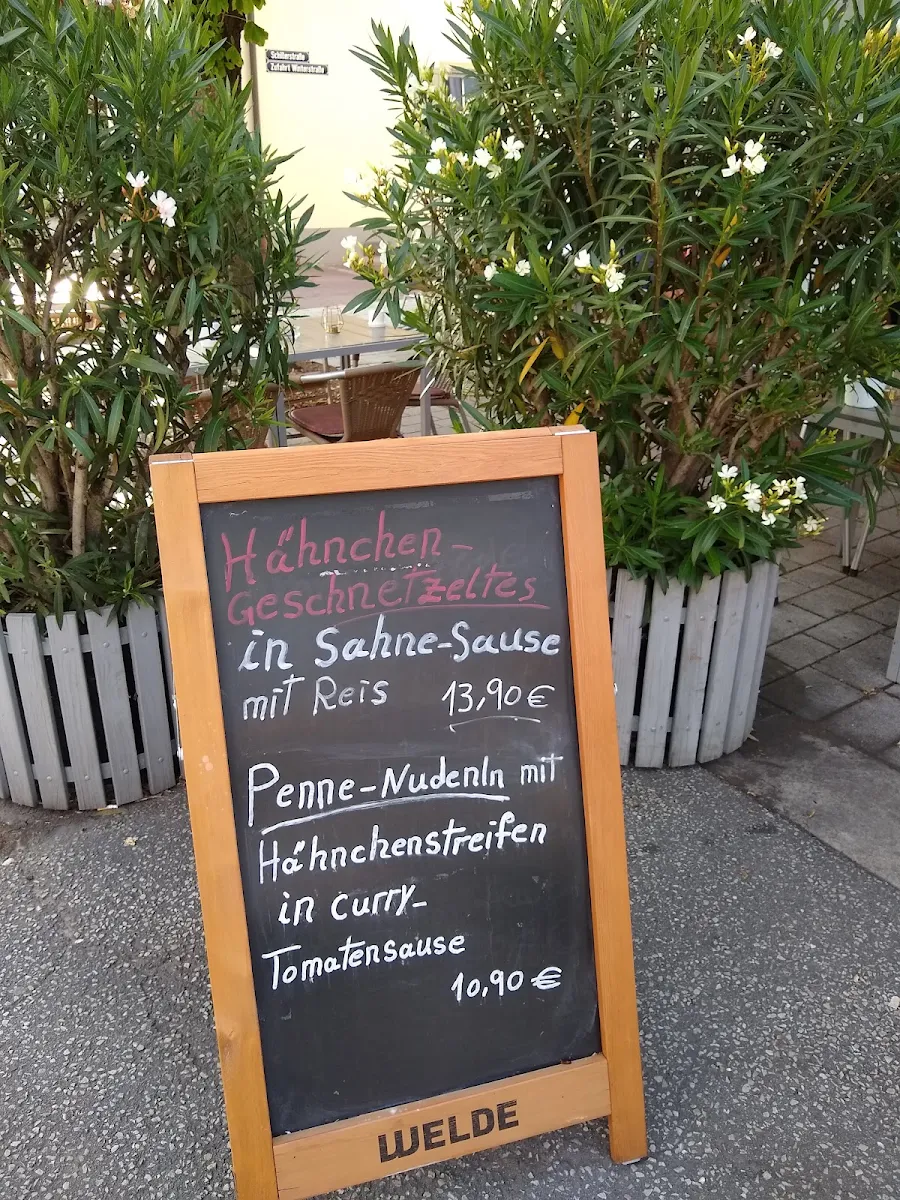 Schillerstraße
Zufahrt Winterstraße
Hähnchen-
Geschnetzeltes
in Sahne-Sause
mit Reis 13,90 €
Penne-Nudenln mit
Hähnchenstreifen
in curry-
Tomatensause
10,90 €
WELDE